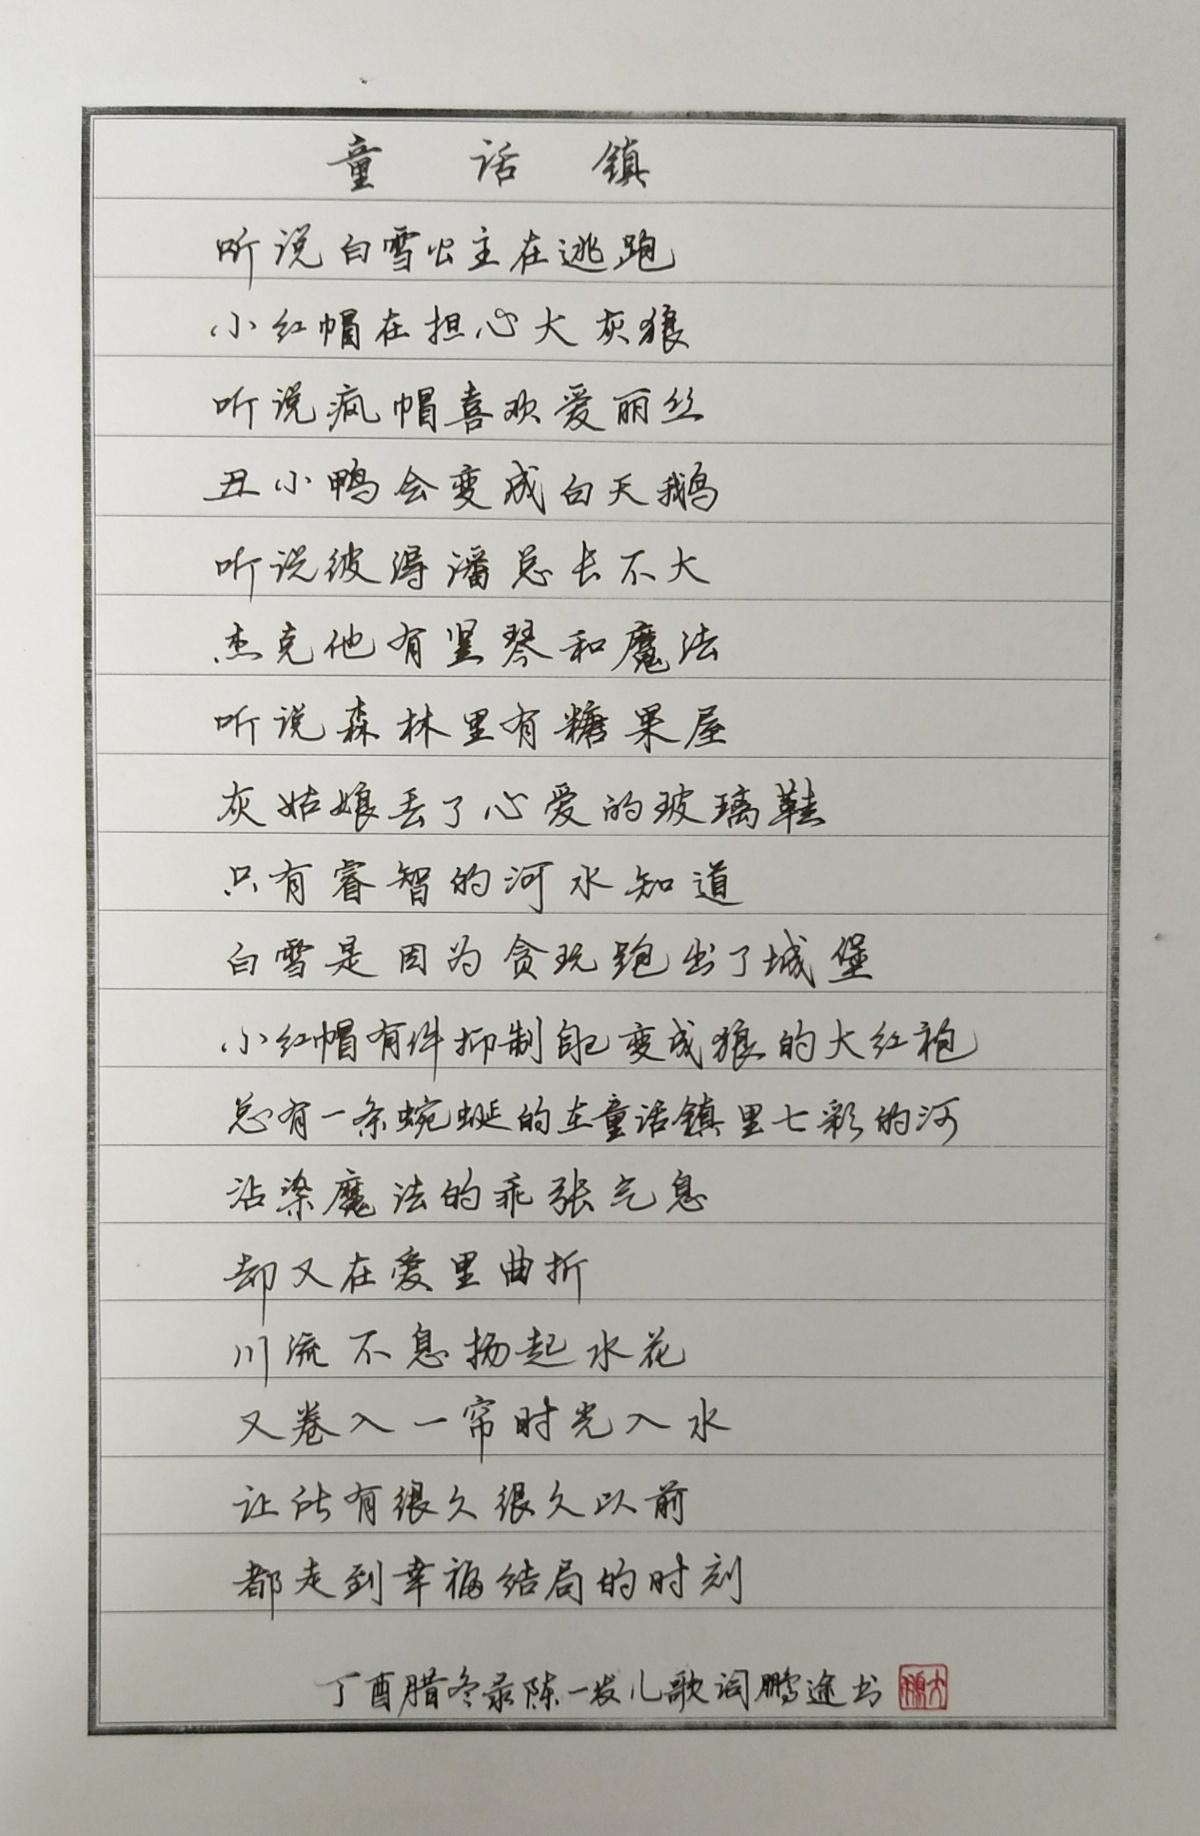 童话镇
听说白雪公主在逃跑
小红帽在担心大灰狼
听说疯帽喜欢爱丽丝
丑小鸭会变成白天鹅
听说彼得潘总长不大
杰克他有竖琴和魔法
听说森林里有糖果屋
灰姑娘丢了心爱的玻璃鞋
只有睿智的河水知道
白雪是因为贪玩跑出了城堡
小红帽有件抑制自己变成狼的大红袍
总有一条蜿蜒的在童话镇里七彩的河
沾染魔法的乖张气息
却又在爱里曲折
川流不息扬起水花
又卷入一帘时光入水
让所有很久很久以前
都走到幸福结局的时刻
丁酉腊冬录陈一发儿歌词鹏途书